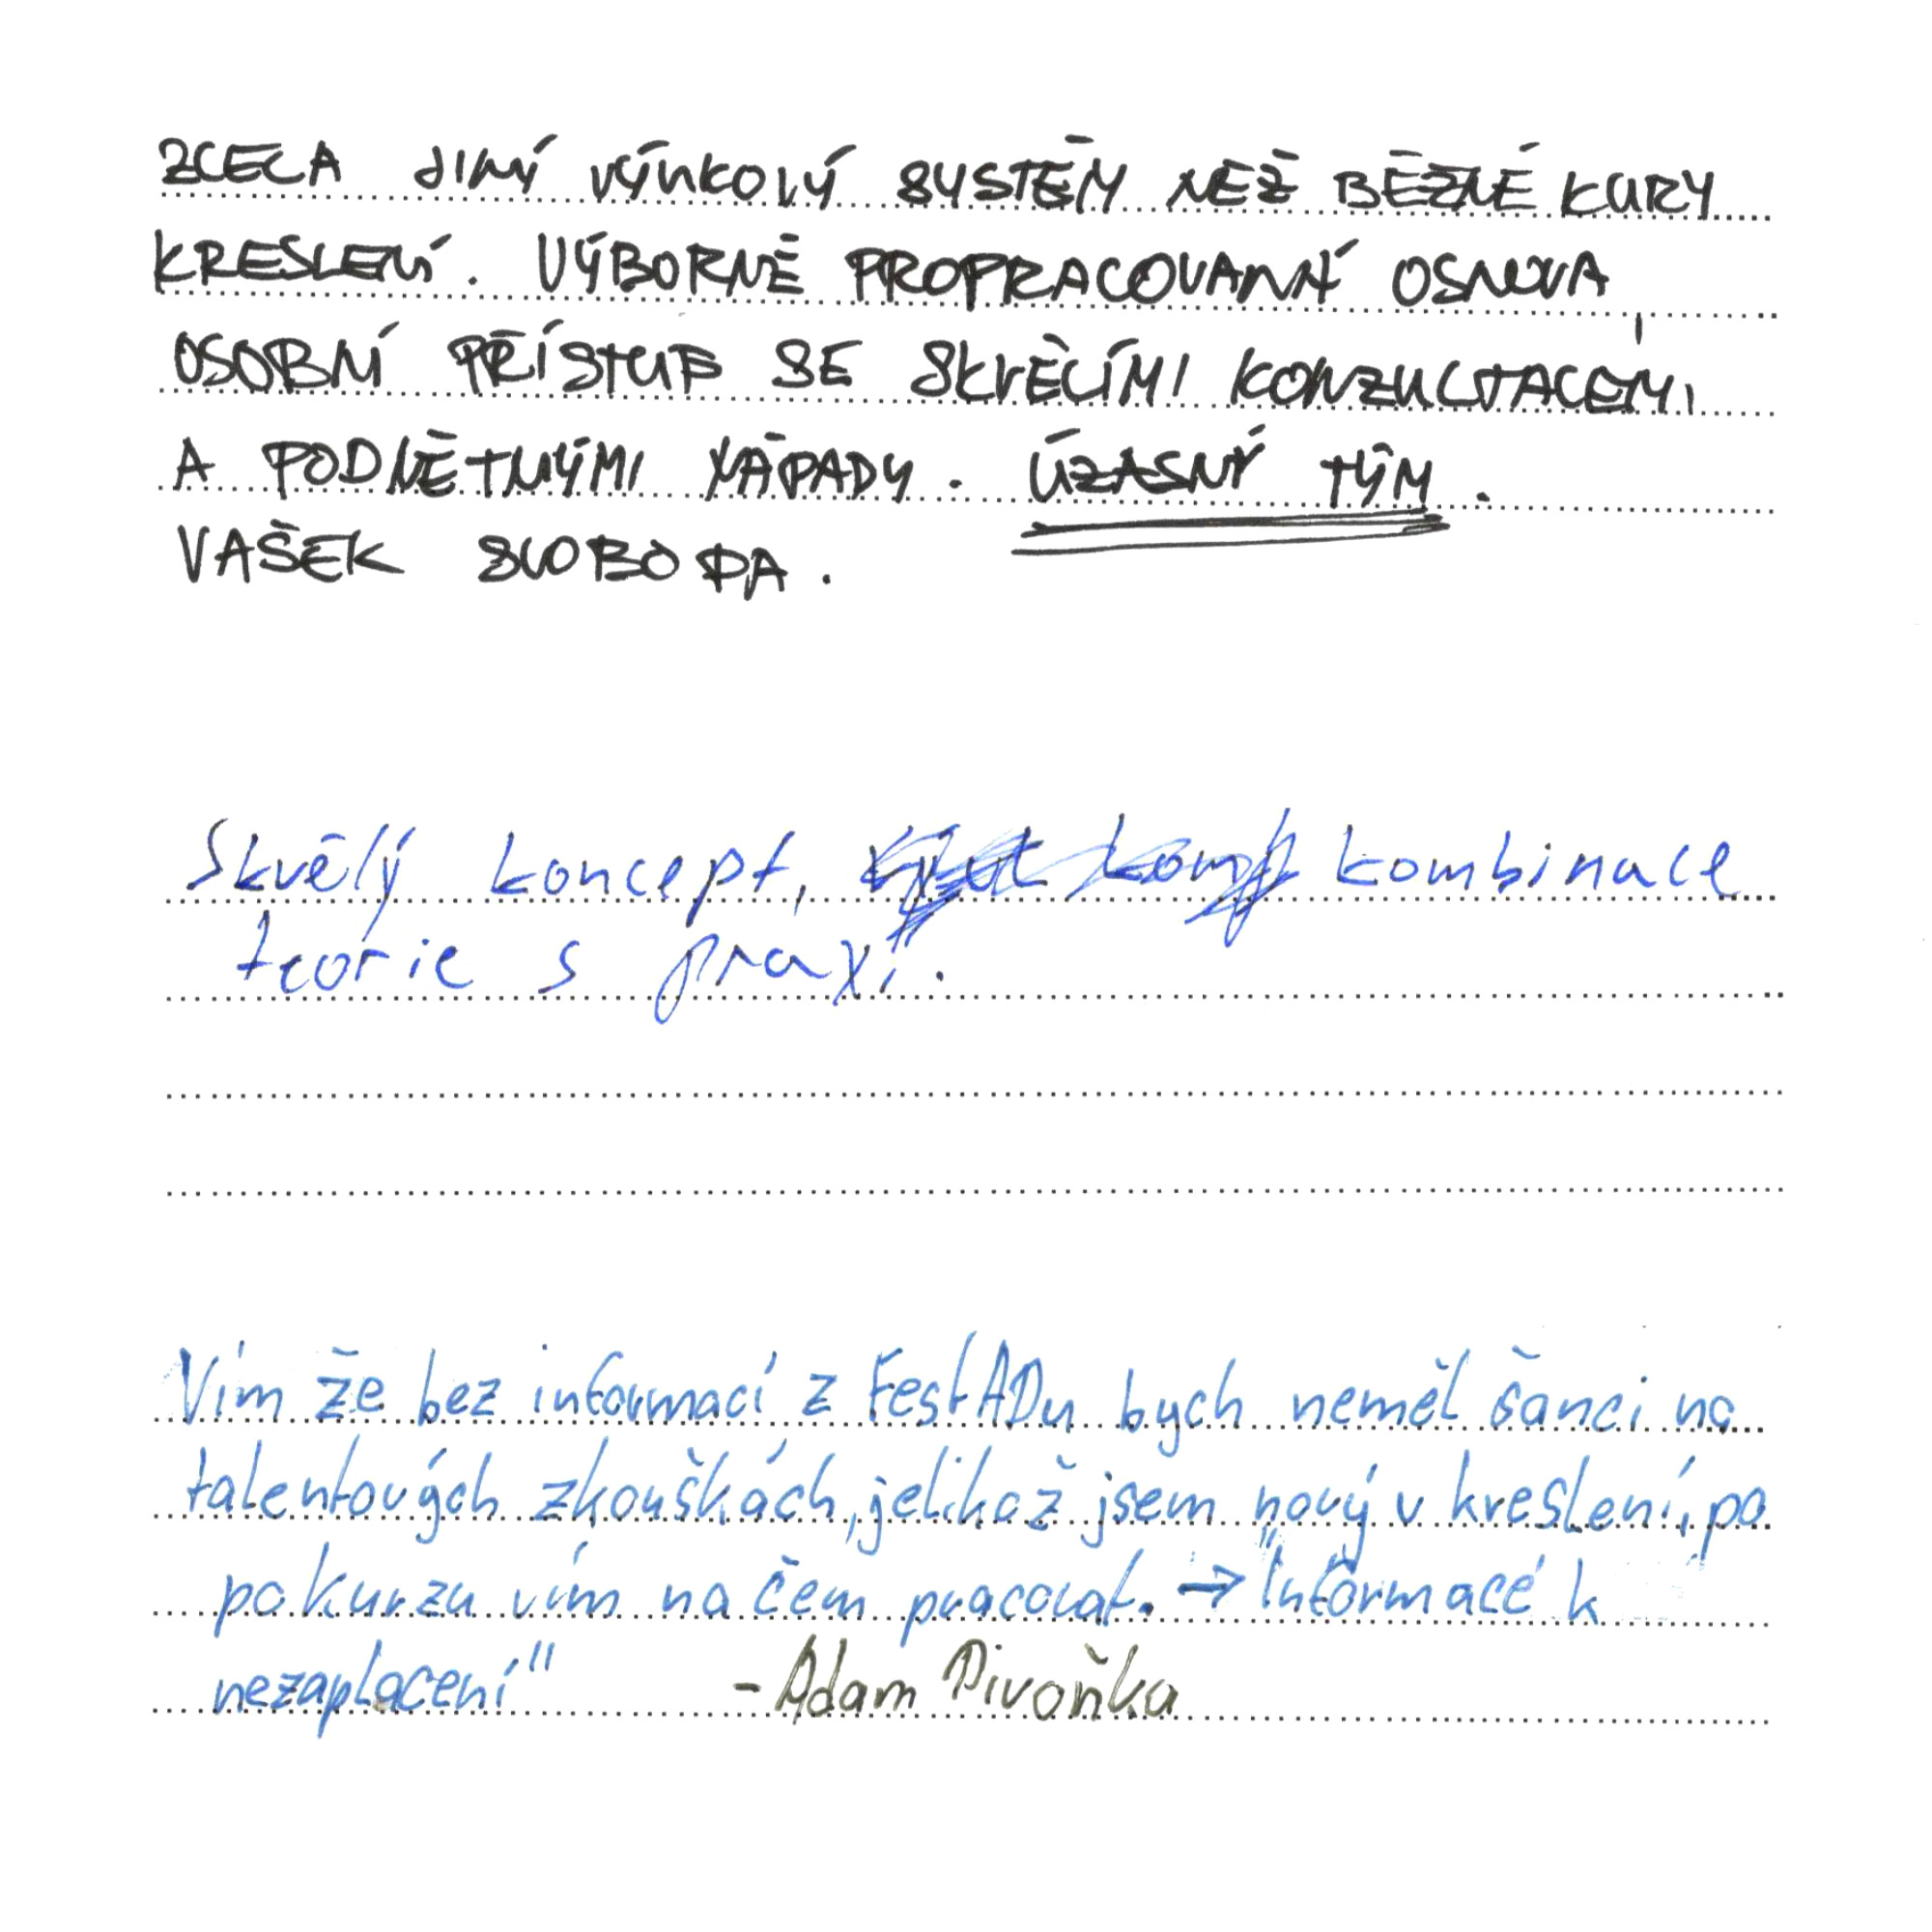 ZCELA JINÝ VÝUKOVÝ SYSTÉM NEŽ BĚŽNÉ KURZY
KRESLENÍ. VÝBORNĚ PROPRACOVANÁ OSNOVA
OSOBNÍ PŘÍSTUP SE SKVĚLÝMI KONZULTACEMI
A PODNĚTNÝMI NÁPADY. ÚZASNÝ TÝM.
VAŠEK SVOBODA.
Skvělý koncept, kombinace
teorie s praxí.
Vím že bez informací z FestADu bych neměl šanci na
talentových zkouškách, jelikož jsem nový v kreslení, po
po kurzu vím na čem pracovat. → "Informacé k
nezaplacení"   - Adam Pivoňka